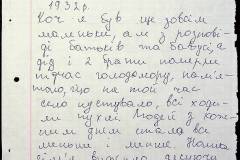 1932р.
Хоч я був ще зовсім
маленьк, але з розпові-
ді батьків та бабусі, а
дід і 2 брати померли
підчас голодомору, пам'я-
таю, що на той час
село пустувало, всі ходи-
ли пухлі. Людей з кож-
ним днем ставало все
менше і менше. Наша
сім'я